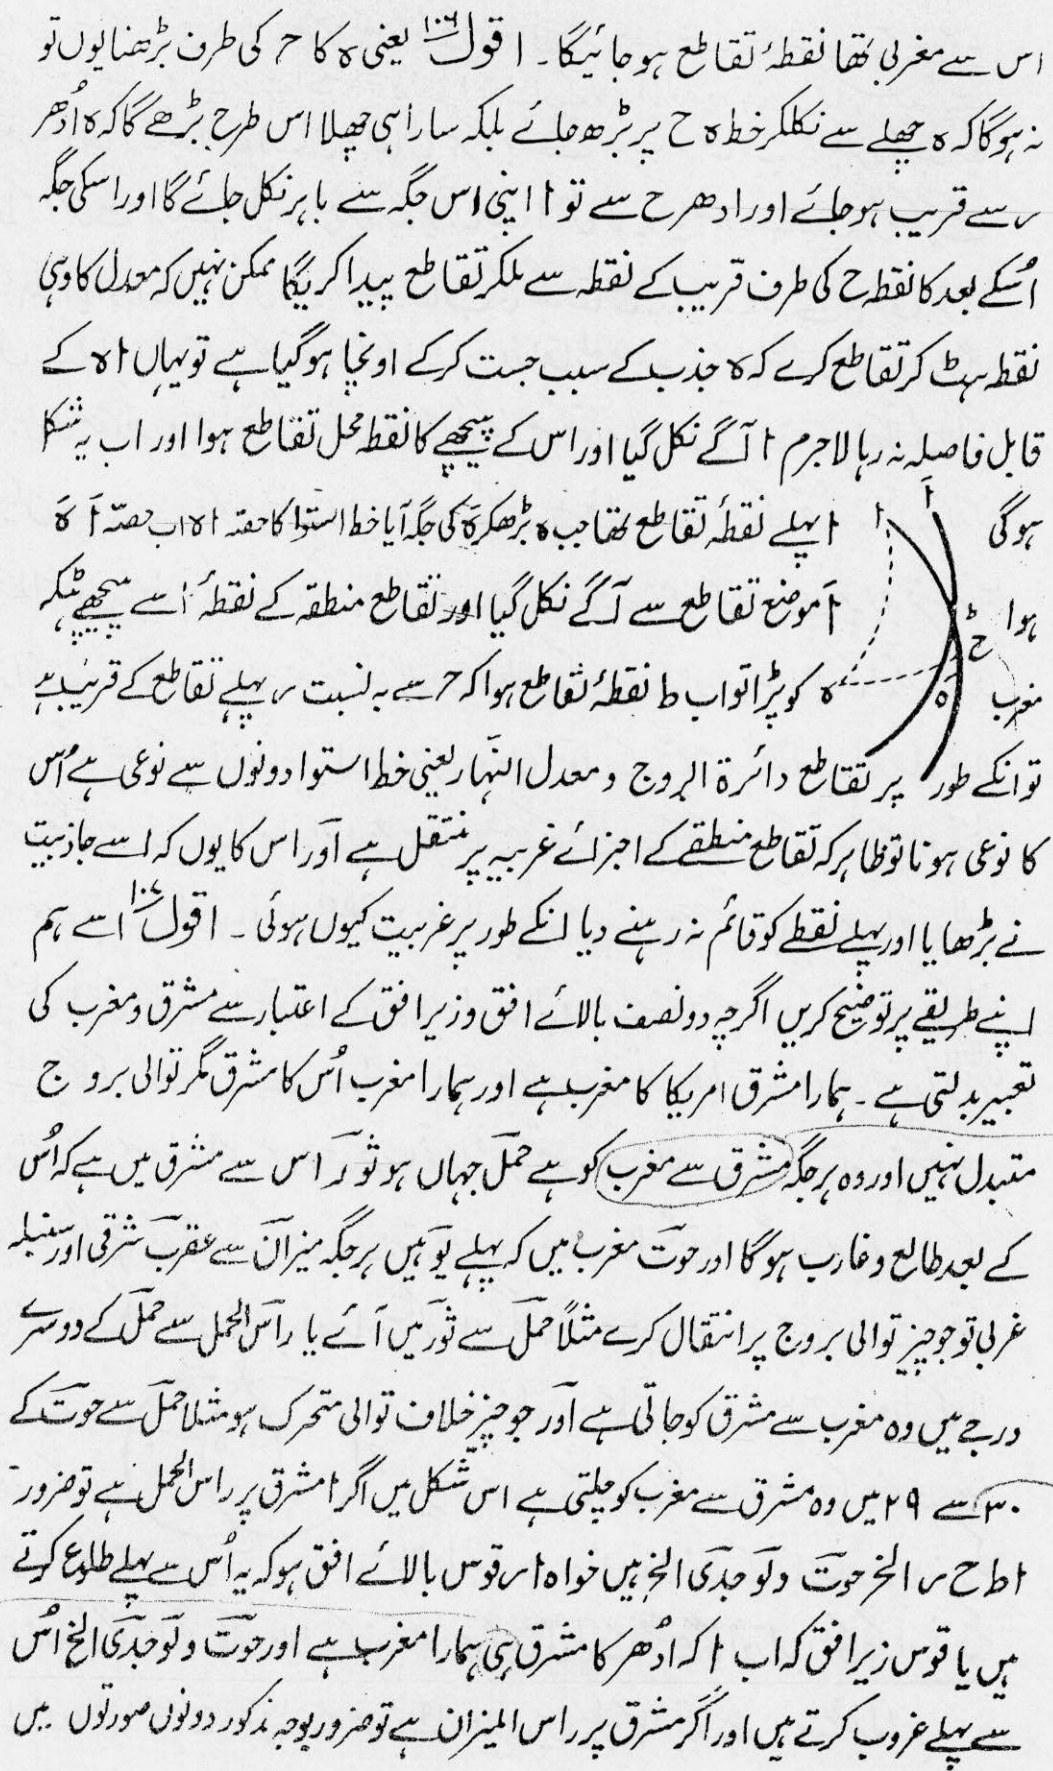 اس سے مغربی تھا نقطۂ تقاطع ہو جائیگا۔ اقول ۱۰۶ یعنی ہ کا ر کی طرف بڑھنا یوں تو
نہ ہوگا کہ ہ چھلے سے نکلکر خط ہ ح پر بڑھ جائے بلکہ سارا ہی چھلا اس طرح بڑھے گا کہ ہ اُدھر
ر سے قریب ہو جائے اور ادھر ح سے تو ا اپنی اس جگہ سے باہر نکل جائے گا اور اسکی جگہ
اُسکے بعد کا نقطہ ح کی طرف قریب کے نقطہ سے ملکر تقاطع پیدا کریگا ممکن نہیں کہ معدل کا وہی
نقطہ ہٹ کر تقاطع کرے کہ ہ جذب کے سبب جست کرکے اونچا ہوگیا ہے تو یہاں ا ہ کے
قابل فاصلہ نہ رہا لاجرم ا آگے نکل گیا اور اس کے پیچھے کا نقطہ محل تقاطع ہوا اور اب یہ شکل
ہوگی اَ ا ا پہلے نقطۂ تقاطع تھا جب ہ بڑھکر ہَ کی جگہ آیا خط استوا کا حصہ ا ہ اب حصہ اَ ہَ
ہوا ط ح اَ موضع تقاطع سے آگے نکل گیا اور تقاطع منطقہ کے نقطۂ ا سے پیچھے ہٹکر
مغرب ہَ ہ کو پڑا تو اب ط نقطۂ تقاطع ہوا کہ ر سے بہ نسبت ر پہلے تقاطع کے قریب ہے
تو انکے طور پر تقاطع دائرۃ البروج و معدل النہار یعنی خط استوا دونوں سے نوعی ہے اُس
کا نوعی ہونا تو ظاہر کہ تقاطع منطقے کے اجزائے غربیہ پر منتقل ہے اور اس کا یوں کہ اسے جاذبیت
نے بڑھایا اور پہلے نقطے کو قائم نہ رہنے دیا انکے طور پر غربیت کیوں ہوئی۔ اقول ۱۰۷ اسے ہم
اپنے طریقے پر توضیح کریں اگرچہ دو نصف بالائے افق و زیر افق کے اعتبار سے مشرق و مغرب کی
تعبیر بدلتی ہے۔ ہمارا مشرق امریکا کا مغرب ہے اور ہمارا مغرب اُس کا مشرق مگر توالی بروج
متبدل نہیں اور وہ ہر جگہ مشرق سے مغرب کو ہے حمل جہاں ہو ثور اس سے مشرق میں ہے کہ اُس
کے بعد طالع و غارب ہوگا اور حوت مغرب میں کہ پہلے یوہیں ہر جگہ میزان سے عقرب شرقی اور سنبلہ
غربی تو جو چیز توالی بروج پر انتقال کرے مثلاً حمل سے ثور میں آئے یا راس الحمل سے حمل کے دوسرے
درجے میں وہ مغرب سے مشرق کو جاتی ہے اور جو چیز خلاف توالی متحرک ہو مثلاً حمل سے حوت کے
۳۰ سے ۲۹ میں وہ مشرق سے مغرب کو چلتی ہے اس شکل میں اگر ا مشرق پر راس الحمل ہے تو ضرور
ا ط ح ر الخ حوت و دلو جدی الخ ہیں خواہ ا ر قوس بالائے افق ہو کہ یہ اُس سے پہلے طلوع کرتے
ہیں یا قوس زیر افق کہ اب ا کہ اُدھر کا مشرق ہی ہمارا مغرب ہے اور حوت و دلو جدی الخ اُس
سے پہلے غروب کرتے ہیں اور اگر مشرق پر راس المیزان ہے تو ضرور بوجہ مذکور دونوں صورتوں میں